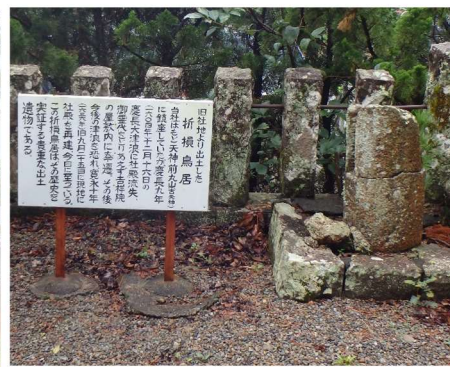 旧社地より出土した
折損鳥居
当社はもと天神前丸山(古天神)
に鎮座していたが慶長九年
(一六〇四年)十二月十六日の
慶長大津波に社殿流失、
御華代とりあえず吉祥院
の屋敷内に奉遷、その後
今後の津波を恐れ寛永十年
旧九月二十五日に現地に
社殿を再建今日に至っている
この折損鳥居はその歴史を
実証する貴重な出土
遺物である。